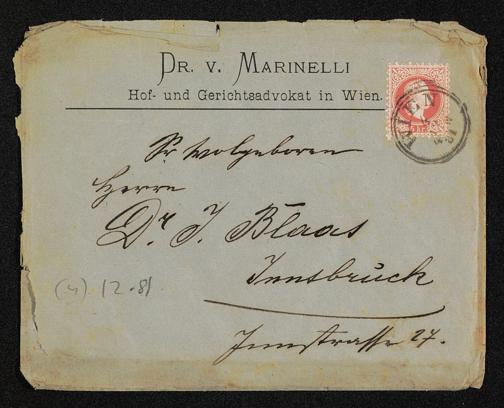 DR. V. MARINELLI
Hof- und Gerichtsadvokat in Wien.
WIEN
5 Kr.
Sr Wolgeboren
Herrn
Dr. J. Blaas
Innsbruck
(4) 12.81.
Innstrasse 27.